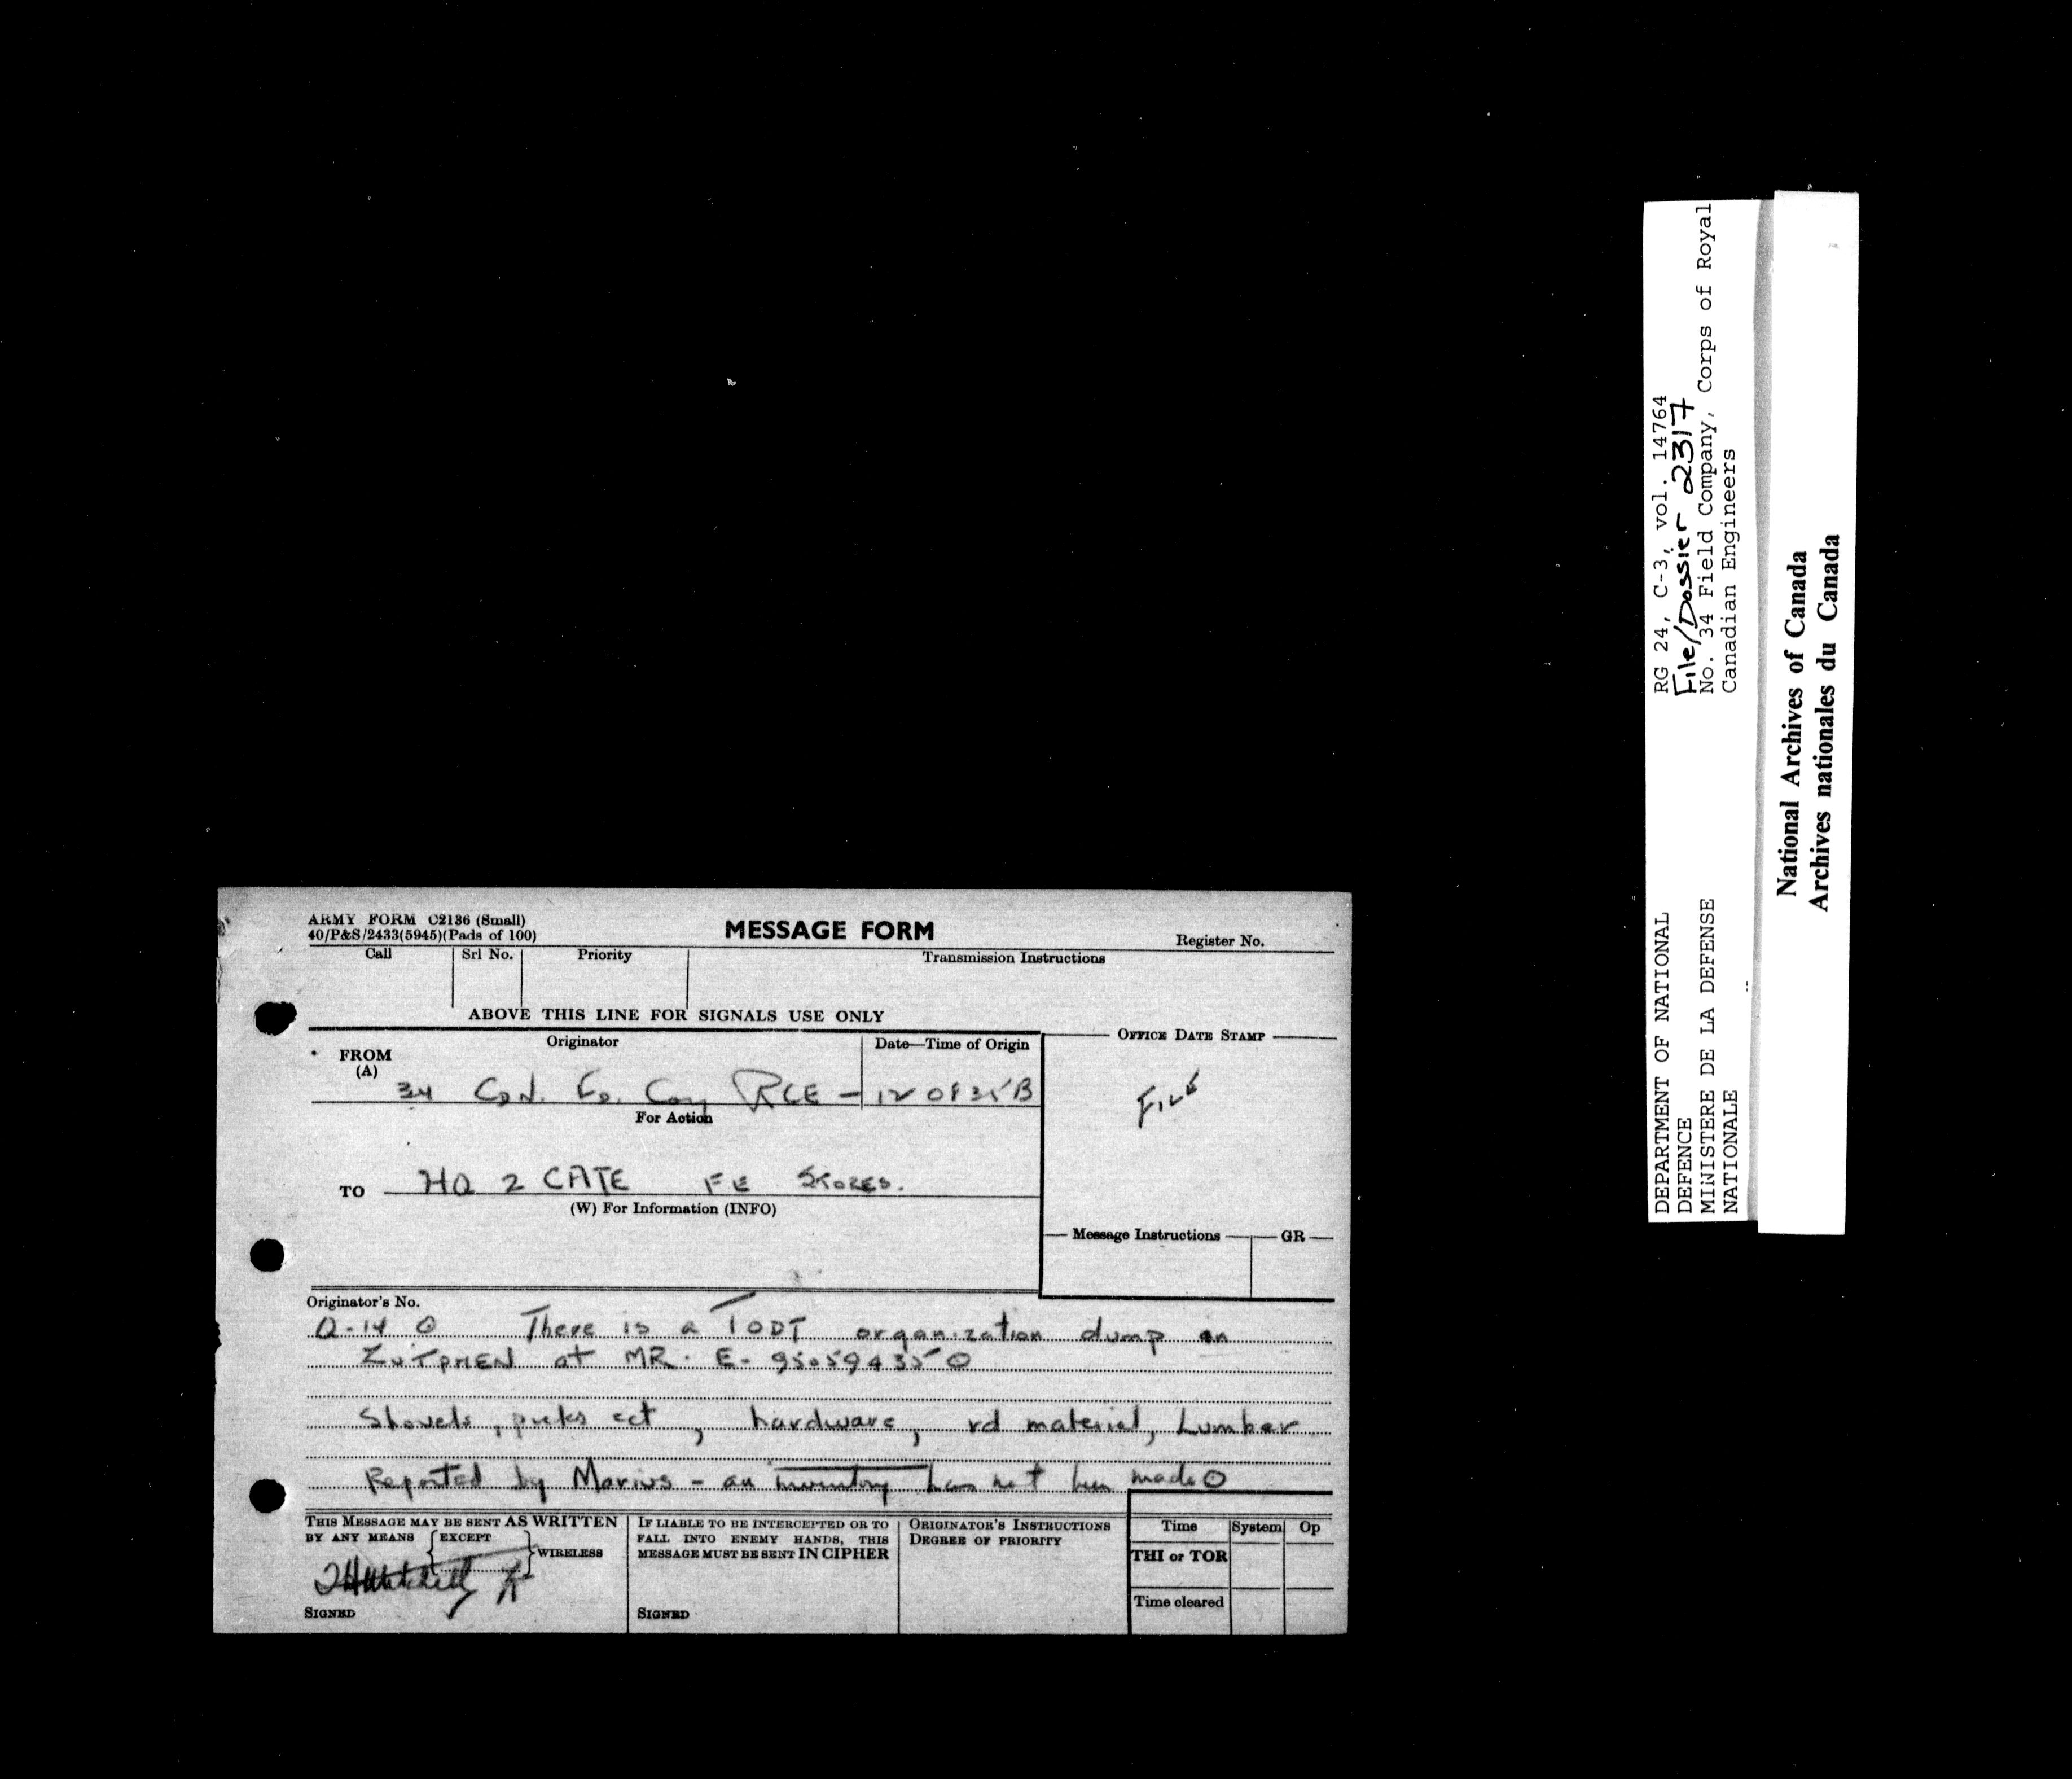 ARMY FORM C2136 (Small)
40/P&S/2433(5945)(Pads of 100)
MESSAGE FORM
Register No.
Call
Srl No.
Priority
Transmission Instructions
ABOVE THIS LINE FOR SIGNALS USE ONLY
FROM
(A)
Originator
Date—Time of Origin
OFFICE DATE STAMP
34 Cdn. Fd. Coy RCE – 120835B
FILE
For Action
TO
HQ 2 CATE FE STORES.
(W) For Information (INFO)
Message Instructions
GR
Originator's No.
Q-14 O There is a TODT organization dump in
ZUTPHEN at MR. E-95059435 O
Shovels, picks ect, hardware, rd material, Lumber
Reported by Marius – an inventory has not been made O
THIS MESSAGE MAY BE SENT AS WRITTEN
BY ANY MEANS
EXCEPT
WIRELESS
SIGNED
IF LIABLE TO BE INTERCEPTED OR TO
FALL INTO ENEMY HANDS, THIS
MESSAGE MUST BE SENT IN CIPHER
SIGNED
ORIGINATOR'S INSTRUCTIONS
DEGREE OF PRIORITY
Time
System
Op
THI or TOR
Time cleared
RG 24, C-3, vol. 14764
File/Dossier 2317
No. 34 Field Company, Corps of Royal
Canadian Engineers
DEPARTMENT OF NATIONAL
DEFENCE
MINISTERE DE LA DEFENSE
NATIONALE
National Archives of Canada
Archives nationales du Canada